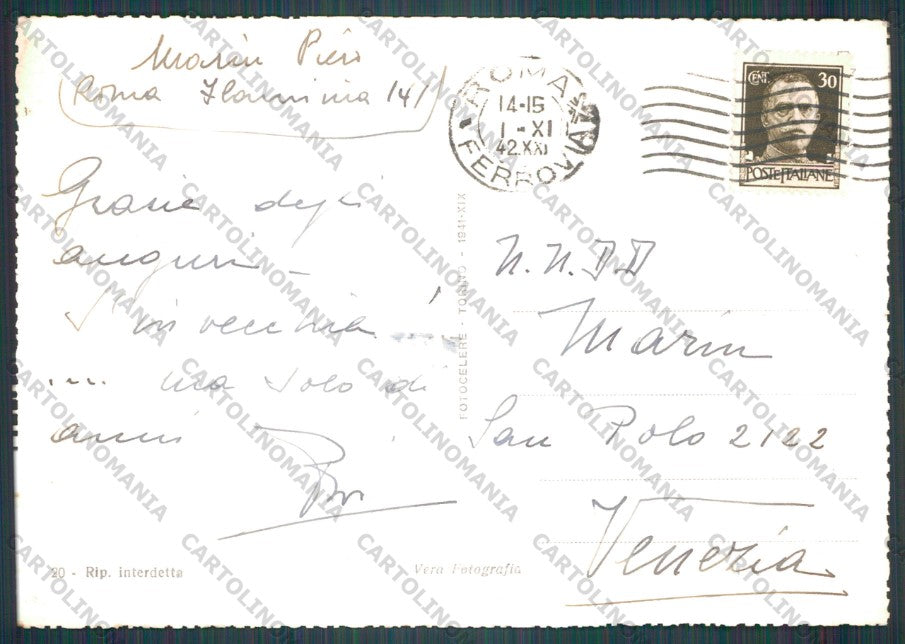 Marin Piero
(Roma Flaminia 14)
Grazie degli
auguri -
S'invecchia!
... ma solo di
anni.
Piero
ROMA
FERROVIA
14-15
1-XI
42.XXI
CENT. 30
POSTE ITALIANE
N. N. D D
Marin
San Polo 2122
Venezia
FOTOCELERE - TORINO - 1941-XIX
20 - Rip. interdetta
Vera Fotografia
CARTOLINOMANIA